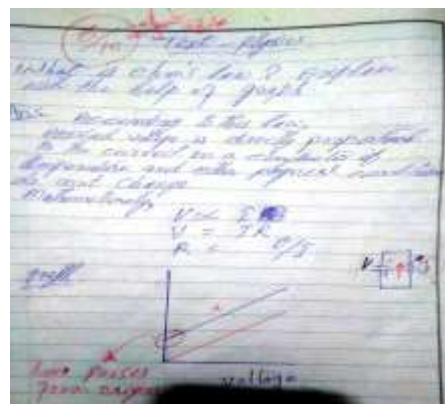 Test - Physics
what is ohm's law? Explain
with the help of graph.
Ans: According to this law
voltage is directly proportional
to the current in a conductor if
temperature and other physical conditions
do not change
Mathematically
V ∝ I
V = IR
R = V/I
graph
V
Line passes
from origin
Voltage